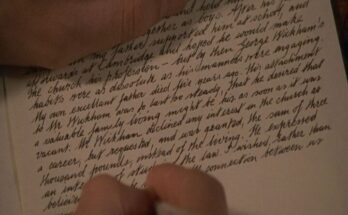 together as boys.
my father supported him at school, and
at Cambridge and hoped he would make
the church his profession - but by then George Wickham's
habits were as dissolute as his demands were engaging.
My own excellent father died five years ago. His attachment
to Mr Wickham was to last so steady, that he desired that
a valuable family living might be his as soon as it was
vacant. Mr Wickham declined any interest in the church as
a career, but requested, and was granted, the sum of three
thousand pounds, instead of the living. He expressed
an intention of studying the law. I wished rather than
believed
connection between us